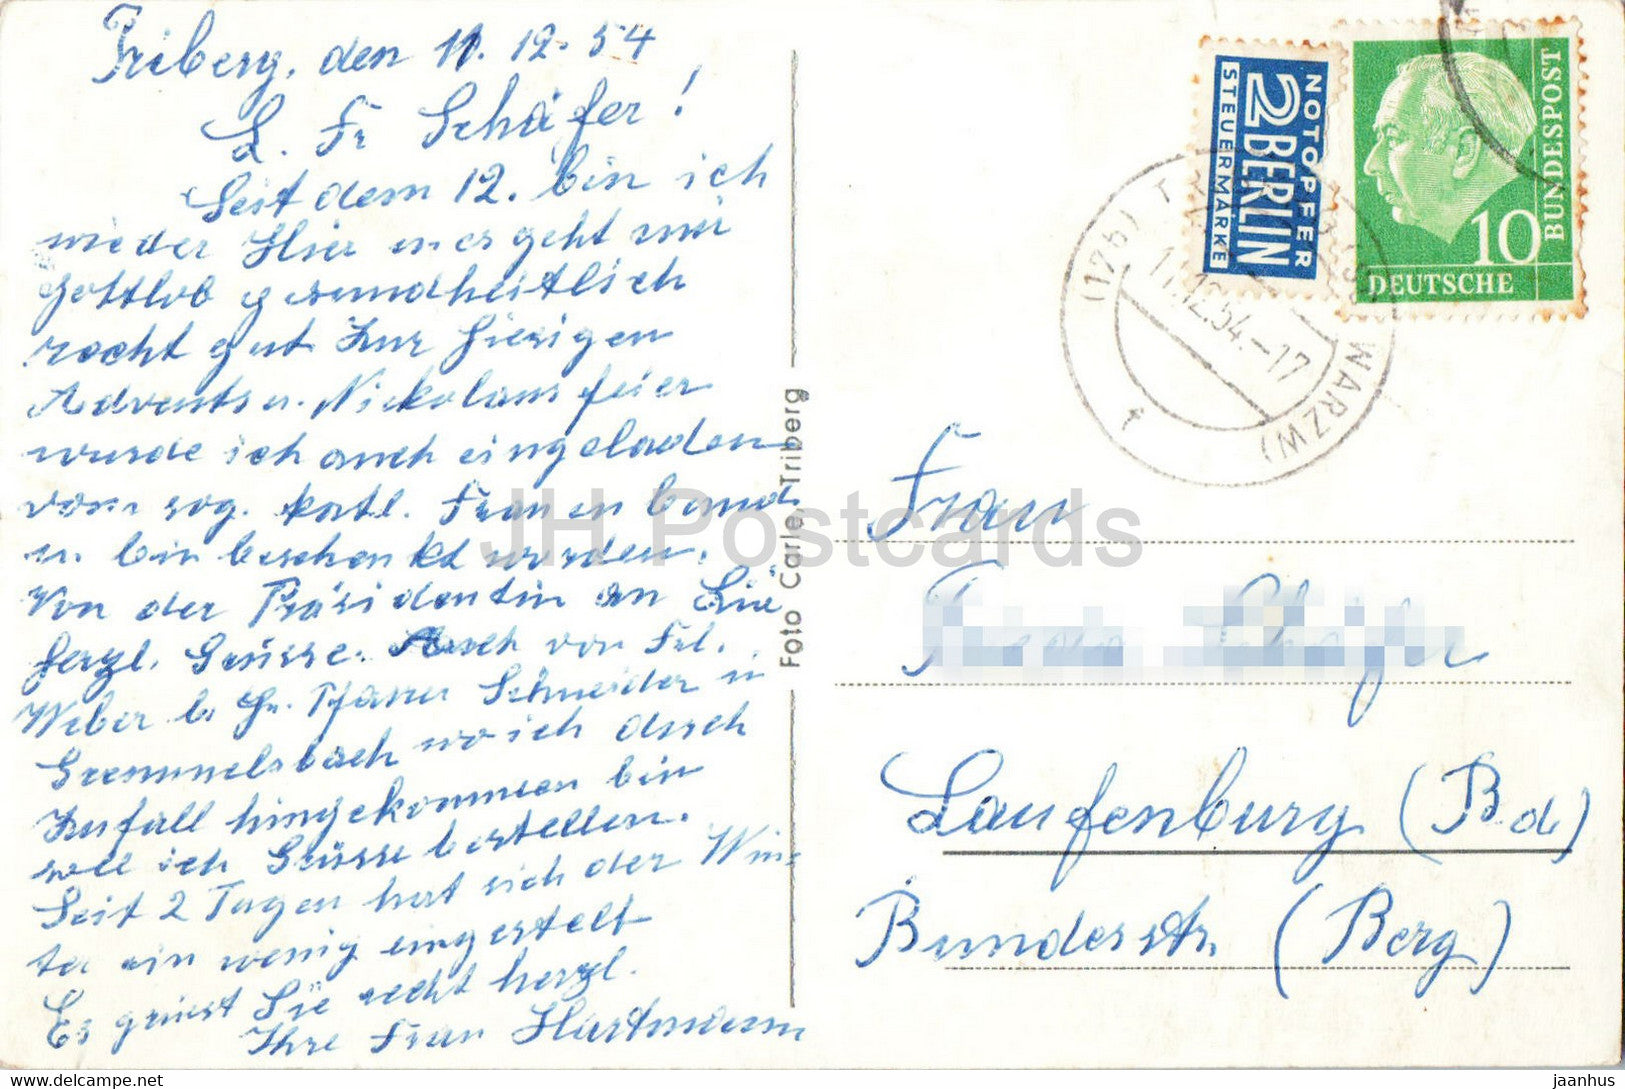 Triberg, den 11. 12. 54
L. Fr Schäfer!
Seit dem 12. bin ich
wieder Hier u. es geht mir
Gottlob gesundheitlich
recht gut Zur hiesigen
Advents u. Nickolausfeier
wurde ich auch eingeladen
vom sog. katl. Frauenbund
u. bin beschenkt worden.
Von der Präsidentin an Sie
herzl. Grüsse. Auch von Frl.
Weber b. Hr. Pfarrer Schneider in
Gremmelsbach wo ich durch
Zufall hingekommen bin
soll ich Grüsse bestellen.
Seit 2 Tagen hat sich der Win-
ter ein wenig eingestellt
Es grüsst Sie recht herzl.
Ihre Frau Hartmann
Foto Carle, Triberg
NOTOPFER
2 BERLIN
STEUERMARKE
10
DEUTSCHE
BUNDESPOST
(17b) TRIBERG (SCHWARZW)
11.12.54.-17
Frau
Laufenburg (Bd)
Bundesstr. (Berg)
JH Postcards
www.delcampe.net
jaanhus